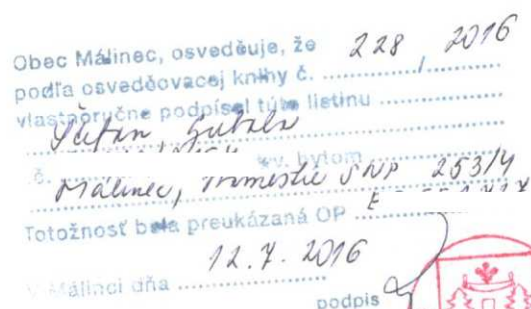 Obec Málinec, osvedčuje, že
podľa osvedčovacej knihy č. 228 / 2016
vlastnoručne podpísal túto listinu
Štefan,
č. bytom
Málinec, námestie SNP 253/4
Totožnosť bola preukázaná OP E
V Málinci dňa 12.7.2016
podpis